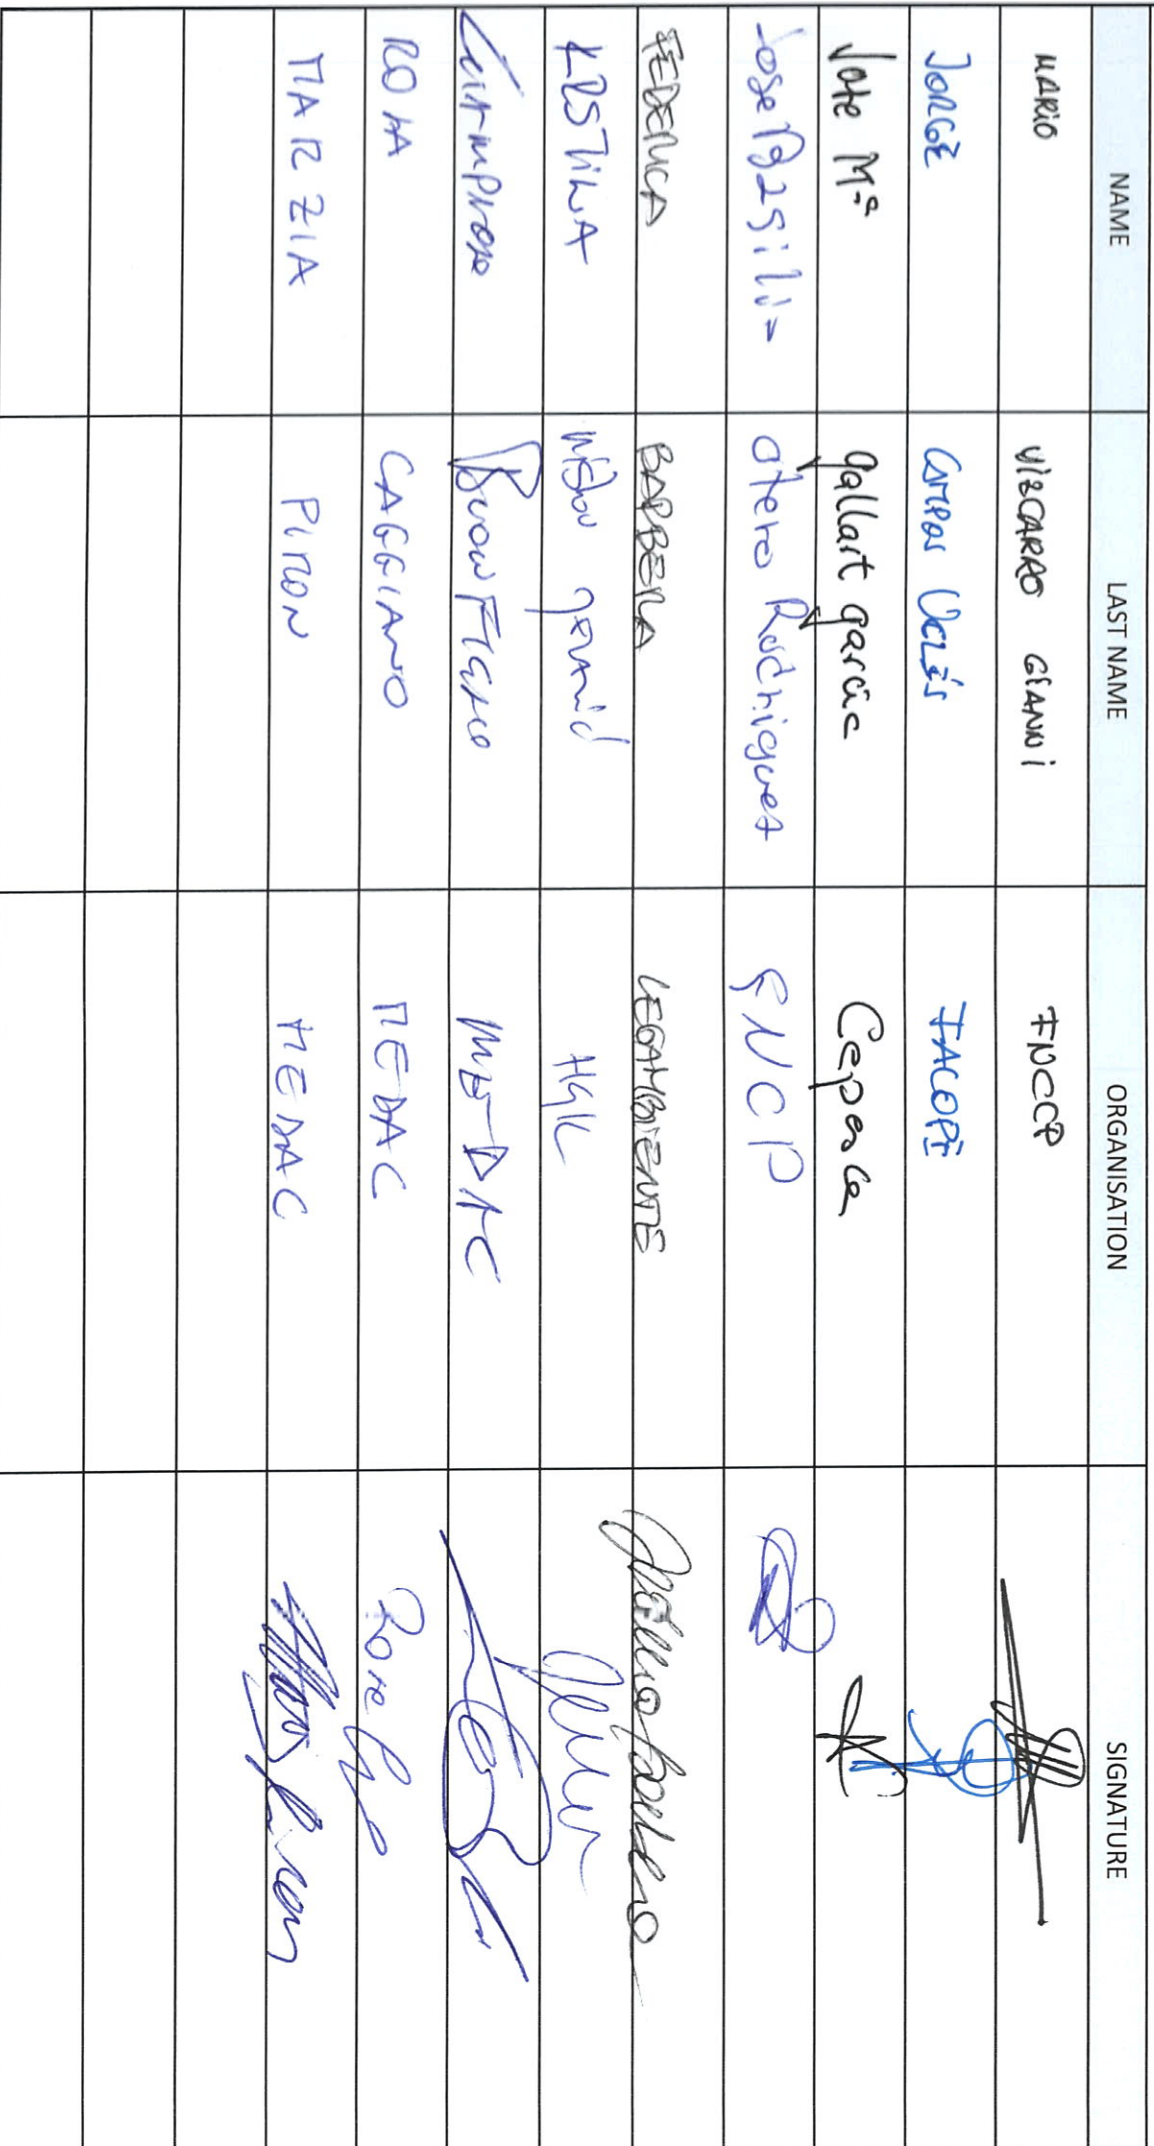 NAME LAST NAME ORGANISATION SIGNATURE
MARIO VIZCARRO GIANNI FNCCP
JORGE CAMPOS UCLÉS FACOPE
Mª gallart garcia Cepesca
Jose Basilio otero Rodriguez FNCP
FEDERICA BARBERA LEGAMBIENTE
KRSTINA HGK
BUONFIGLIO MEDAC
ROSA CAGGIANO MEDAC
MARZIA PIRON MEDAC